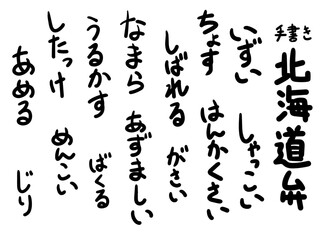 手書き
北海道弁
いずい しゃっこい
ちょす はんかくさい
しばれる がさい
なまら あずましい
うるかす ばくる
したっけ めんこい
あめる じり